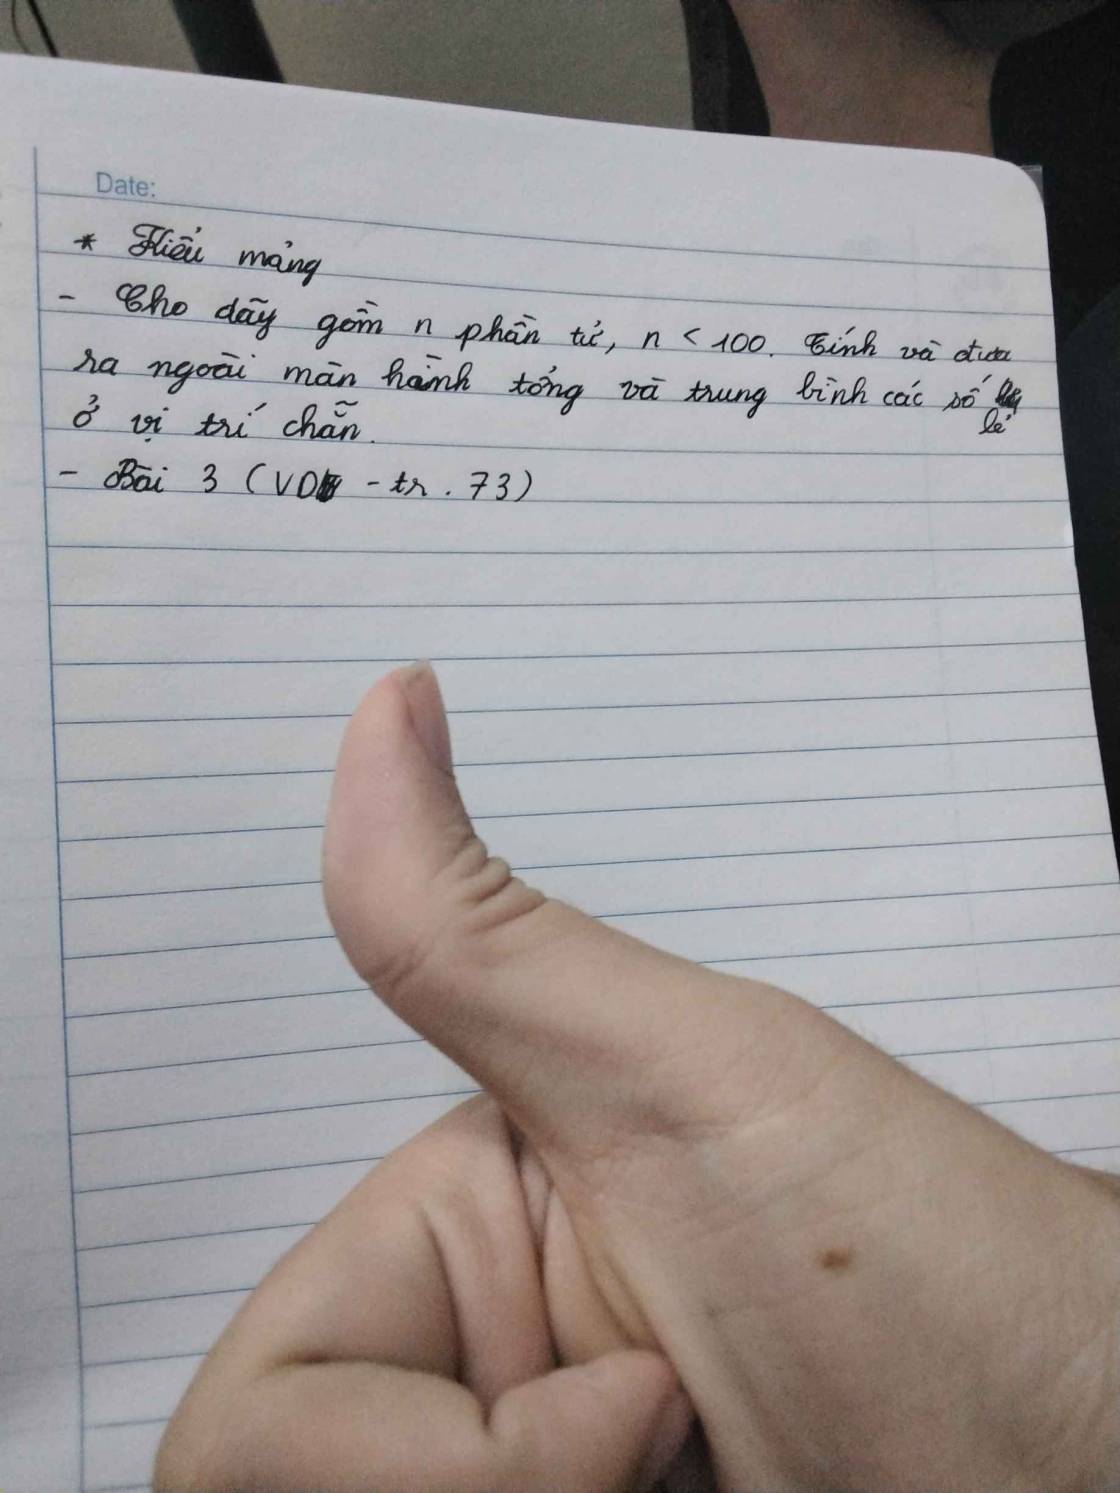 Date:
* Kiểu mảng
- Cho dãy gồm n phần tử, n < 100. Tính và đưa
ra ngoài màn hành tổng và trung bình các số
lẻ
ở vị trí chẵn.
- Bài 3 (VD - tr. 73)